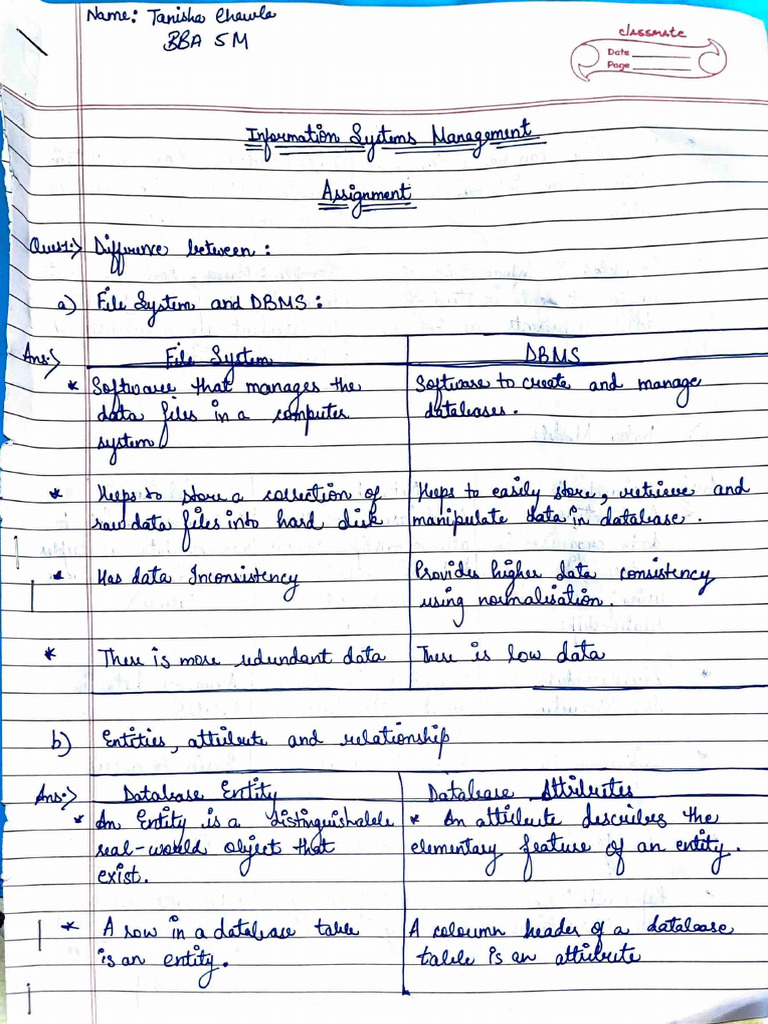 Name: Tanisha Chawla
BBA 5M
classmate
Date
Page
Information Systems Management
Assignment
Quest:> Difference between :
a) File System and DBMS :
Ans:> File System
DBMS
* Software that manages the
data files in a computer
system
Software to create and manage
databases.
* Helps to store a collection of
raw data files into hard disk
Helps to easily store, retrieve and
manipulate data in database.
* Has data Inconsistency
Provides higher data consistency
using normalisation.
* There is more redundant data
There is low data
b) Entities, attribute and relationship
Ans:> Database Entity
Database Attributes
* An Entity is a distinguishable
real-world object that
exist.
* An attribute describes the
elementary feature of an entity.
* A row in a database table
is an entity.
A coloumn header of a database
table is an attribute